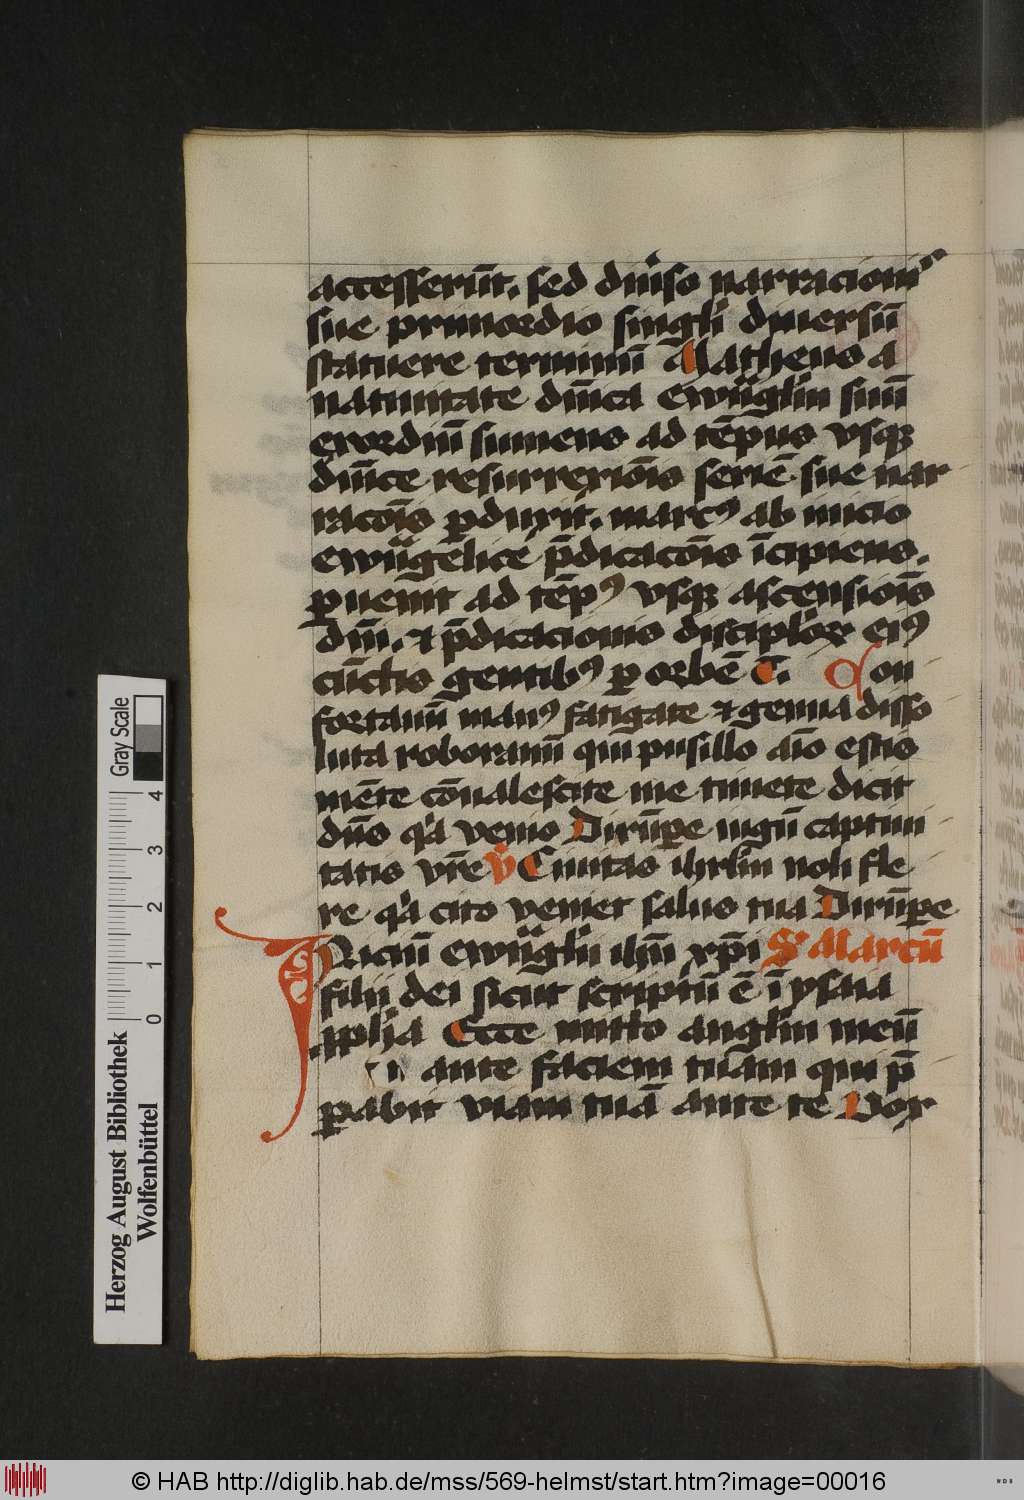 accesserūt. sed diu̾so narracionis
sue primordio singli̾ diuersū
statuere terminū Matheus a
natiuitate dn̄ica ewāgl̄iu suū
exordiū sumens ad tēpus vsqꝫ
dn̄ice resurrexiōis seriē sue nar
racōis ꝑduxit. marcꝰ ab inicio
ewāgelice p̄dicacōis īcipiens.
ꝑuenit ad tēpꝰ vsqꝫ ascensiōis
dn̄i. ⁊ p̄dicacionis disciploꝝ eiꝰ
cūctis gentibꝰ ꝑ orbē T. Con
fortamī manꝰ fatigate ⁊ genua disso
luta roboramī qui pusillo aīo estis
mēte cōualescite ne timete dicit
dn̄s qͥa venio Dirūpe iugū captiui
tatis vr̄e v̾ Ciuitas ihrl̄m noli fle
re qͥa cito veniet salus tua Dirūpe
INiciū ewāgl̄ij ihū xp̄i S Marcū
filij dei sicut scriptū ē ī ysaia
ꝓph̄a Ecce mitto angl̄m meū
ante faciem tuam qui p̄
ꝑabit viam tuā ante te Vox
Gray Scale
4 3 2 1 0
Herzog August Bibliothek
Wolfenbüttel
© HAB http://diglib.hab.de/mss/569-helmst/start.htm?image=00016